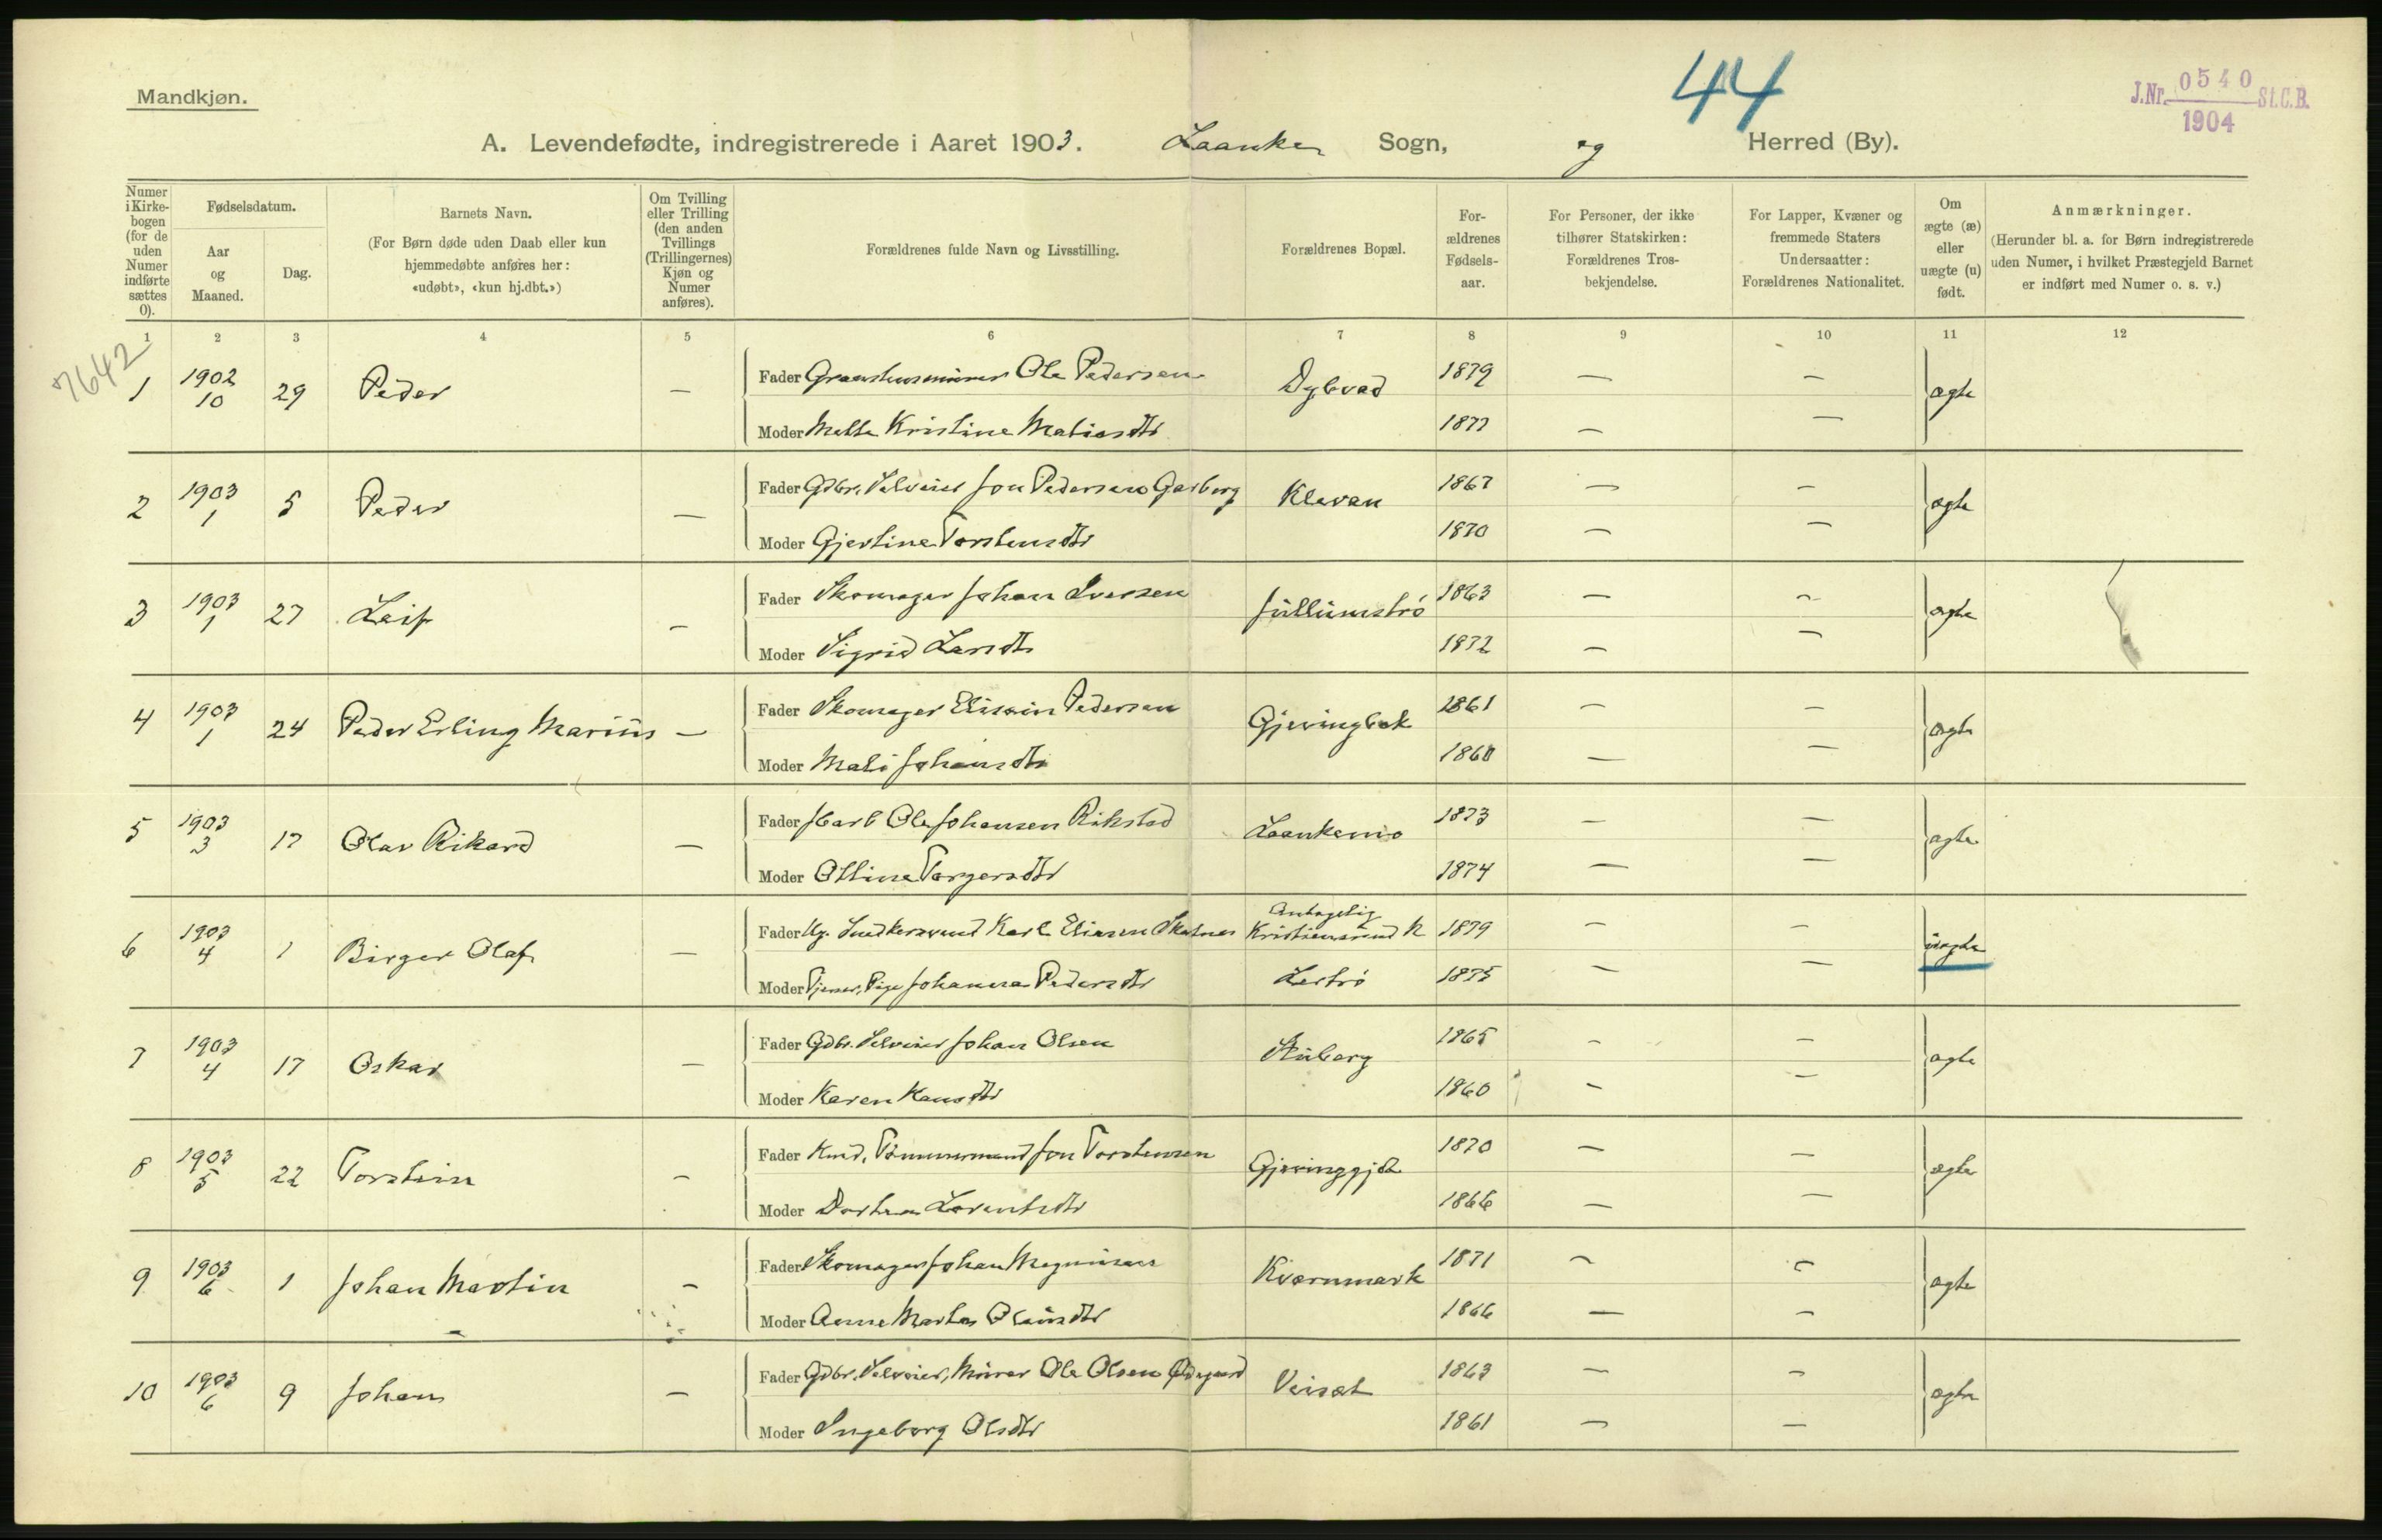 44
J.Nr. 0540 St.C.B.
1904
Mandkjøn.
A. Levendefødte, indregistrerede i Aaret 1903. Laanke Sogn, og Herred (By).
Numer i Kirkebogen (for de uden Numer indførte sættes 0).
Fødselsdatum.
Aar og Maaned.
Dag.
Barnets Navn.
(For Børn døde uden Daab eller kun hjemmedøbte anføres her: «udøbt», «kun hj.dbt.»)
Om Tvilling eller Trilling (den anden Tvillings (Trillingernes) Kjøn og Numer anføres).
Forældrenes fulde Navn og Livsstilling.
Forældrenes Bopæl.
Forældrenes Fødselsaar.
For Personer, der ikke tilhører Statskirken: Forældrenes Trosbekjendelse.
For Lapper, Kvæner og fremmede Staters Undersaatter: Forældrenes Nationalitet.
Om ægte (æ) eller uægte (u) født.
Anmærkninger.
(Herunder bl. a. for Børn indregistrerede uden Numer, i hvilket Præstegjeld Barnet er indført med Numer o. s. v.)
1 2 3 4 5 6 7 8 9 10 11 12
7642
1 1902 10 29 Peder — Fader Ole Pedersen Dybvad 1879 — — ægte
Moder Mette Kristine 1877 — —
2 1903 1 5 Peder — Fader Gdbr. Selveier Jon Pedersen Garberg Klevan 1867 — — ægte
Moder Gjertine Torstensdtr 1870 — —
3 1903 1 27 Leif — Fader Skomager Johan Iversen Jullumstrø 1863 — — ægte
Moder Sigrid Larsdtr 1872 — —
4 1903 1 24 Peder Erling Marius — Fader Skomager Pedersen Gjevingbak 1861 — — ægte
Moder Mali Johansdtr 1860 — —
5 1903 3 17 Olav Rikard — Fader Ole Johansen Rikstad Laankemo 1873 — — ægte
Moder Olline Torgersdtr 1874 — —
6 1903 4 1 Birger Olaf — Fader Ug. Snedkersvend Karl Eliasen Antagelig Kristiansund N 1879 — — uægte
Moder Tjener, Pige Johanna Pedersdtr Lestrø 1875 — —
7 1903 4 17 Oskar — Fader Gdbr. Selveier Johan Olsen Stuberg 1865 — — ægte
Moder Karen 1860 — —
8 1903 5 22 Torstein — Fader Tømmermand Jon Torstensen 1870 — — ægte
Moder Lorentsdtr 1866 — —
9 1903 6 1 Johan Martin — Fader Skomager Johan Magnussen Kvernmark 1871 — — ægte
Moder Anne Marta 1866 — —
10 1903 6 9 Johan — Fader Gdbr. Selveier, Murer Ole Olsen Ødegaard 1863 — — ægte
Moder Ingeborg Olsdtr 1861 — —